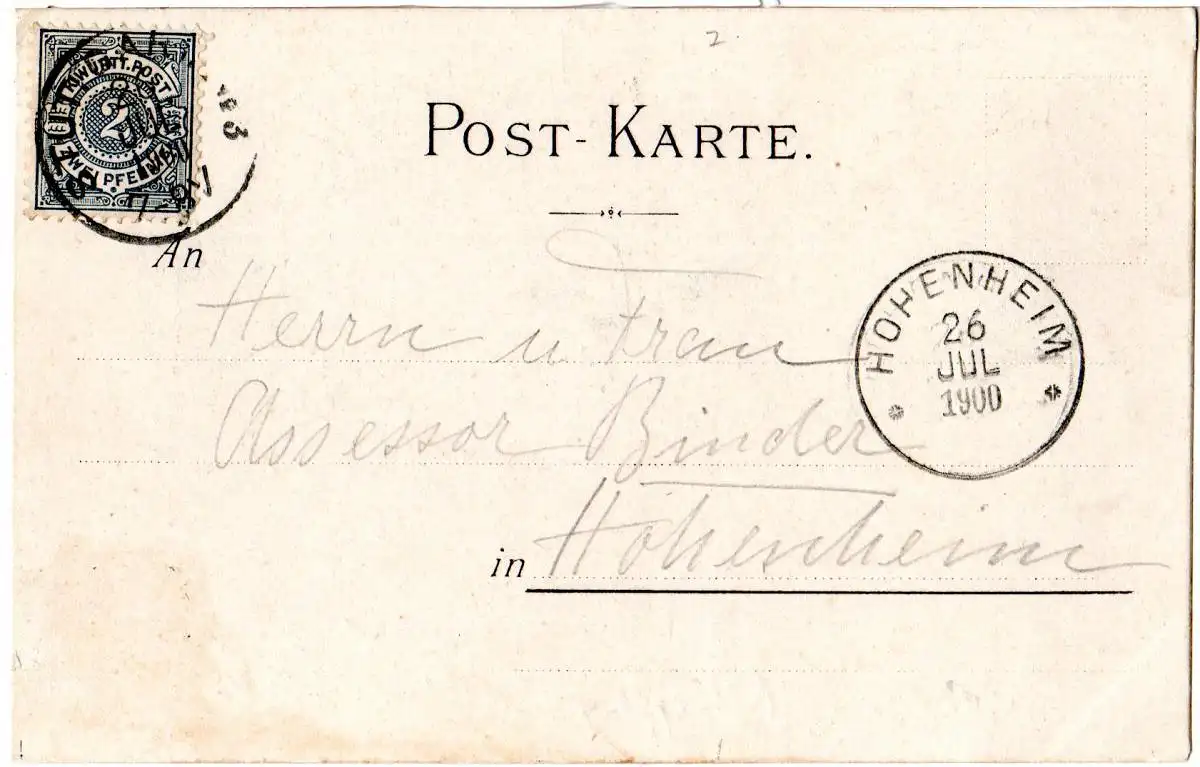 2
K. WÜRTT. POST
2
ZWEI PFENNIG
POST-KARTE.
An
Herrn u Frau
Assessor Binder
in Hohenheim
HOHENHEIM
26
JUL
1900